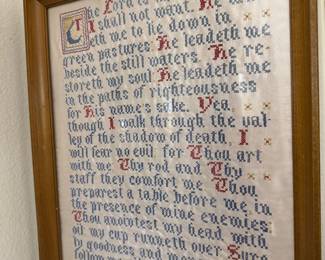 The Lord is
I shall not want. He
eth me to lie down in
green pastures: He leadeth me
beside the still waters. He re-
storeth my soul He leadeth me
in the paths of righteousness
for His name's sake. Yea,
though I walk through the val-
ley of the shadow of death, I
will fear no evil for Thou art
with me Thy rod and Thy
staff they comfort me Thou
preparest a table before me in
the presence of mine enemies
Thou anointest my head with
oil my cup runneth over Sure
goodness and
follow